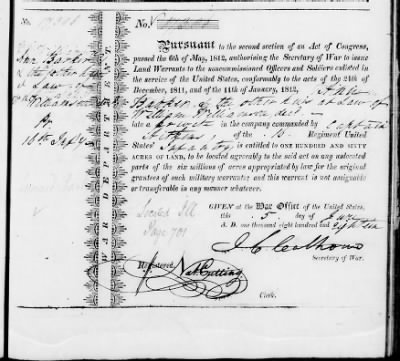 No.
No.
Pursuant to the second section of an Act of Congress,
passed the 6th of May, 1812, authorising the Secretary of War to issue
Land Warrants to the noncommissioned Officers and Soldiers enlisted in
the service of the United States, conformably to the acts of the 24th of
December, 1811, and of the 11th of January, 1812, Ann
Barker & the other heirs at Law of
William Williamson decd.
late a private in the company commanded by Captain
of the Regiment United
States' Infantry, is entitled to ONE HUNDRED AND SIXTY
ACRES OF LAND, to be located agreeably to the said act on any unlocated
parts of the six millions of acres appropriated by law for the original
grantees of such military warrants; and this warrant is not assignable
or transferable in any manner whatever.
GIVEN at the War Office of the United States,
this 5 day of June
A. D. one thousand eight hundred and eighteen
J C Calhoun
Secretary of War.
Registered,
Clerk.
WAR DEPARTMENT.
Ann Barker
& the other heirs
at Law of
Williamson
Located Ill
Page 701